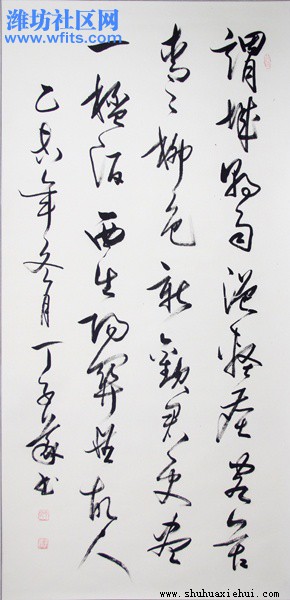 潍坊社区网
www.wfits.com
渭城朝雨浥輕塵客舍
青〻柳色新勸君更盡
一杯酒西出陽關無故人
年冬月丁子書
www.shuhuaxiehui.com